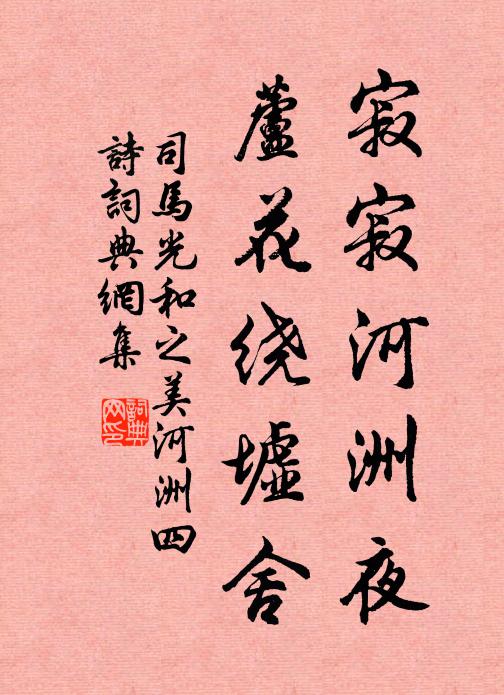 寂寂河洲夜
蘆花绕墟舍
司馬光和之美河洲四
詩詞典網集
詞典
网印